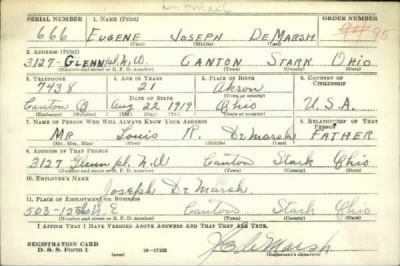 SERIAL NUMBER 1. NAME (Print) ORDER NUMBER
666 EUGENE JOSEPH DEMARSH 95
(First) (Middle) (Last)
2. ADDRESS (Print)
3127-GLENN pl. N.W. CANTON STARK OHIO
(Number and street or R. F. D. number) (Town) (County) (State)
3. TELEPHONE 4. AGE IN YEARS 5. PLACE OF BIRTH 6. COUNTRY OF CITIZENSHIP
7438 21 Akron
DATE OF BIRTH (Town or county)
Canton O Aug 22 1919 Ohio U.S.A.
(Exchange) (Mo.) (Day) (Yr.) (State or country)
7. NAME OF PERSON WHO WILL ALWAYS KNOW YOUR ADDRESS 8. RELATIONSHIP OF THAT PERSON
Mr Louis R. DeMarsh FATHER
(Mr., Mrs., Miss) (First) (Middle) (Last)
9. ADDRESS OF THAT PERSON
3127 Glenn pl. N.W Canton Stark Ohio
(Number and street or R. F. D. number) (Town) (County) (State)
10. EMPLOYER'S NAME
Joseph DeMarsh
11. PLACE OF EMPLOYMENT OR BUSINESS
Canton Stark Ohio
(Number and street or R. F. D. number) (Town) (County) (State)
I AFFIRM THAT I HAVE VERIFIED ABOVE ANSWERS AND THAT THEY ARE TRUE.
REGISTRATION CARD
D. S. S. Form 1 (over) (Registrant's signature)